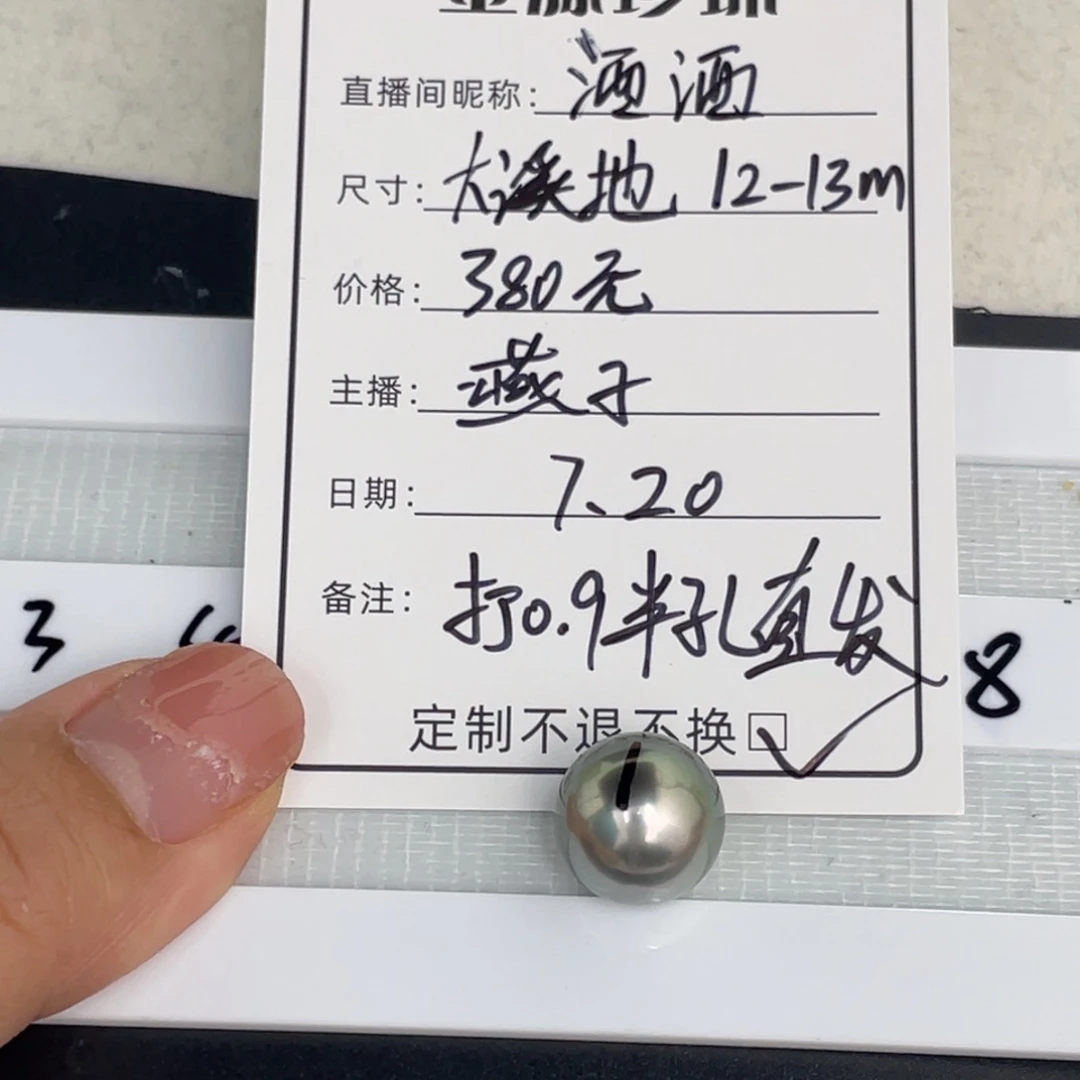 直播间昵称: 洒洒
尺寸: 大溪地 12-13m
价格: 380元
主播: 燕子
日期: 7、20
备注: 打0.9半孔直发
3
8
定制不退不换